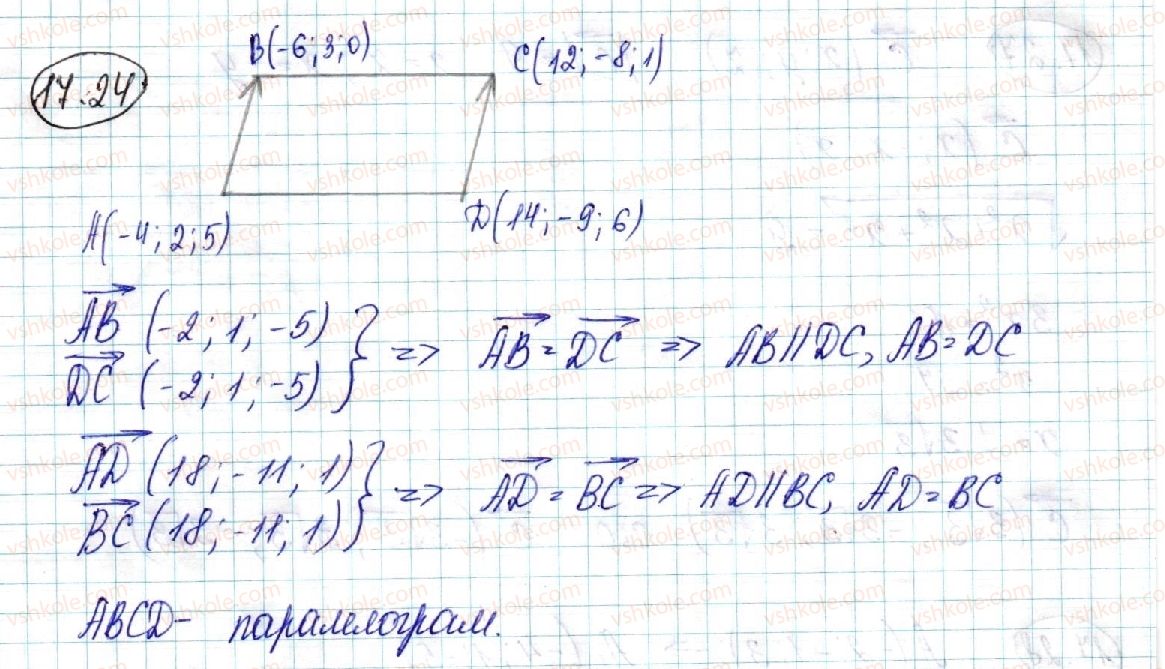 17.24
B(-6; 3; 0)
C(12; -8; 1)
A(-4; 2; 5)
D(14; -9; 6)
AB (-2; 1; -5)
DC (-2; 1; -5) } => AB = DC => AB || DC, AB = DC
AD (18; -11; 1)
BC (18; -11; 1) } => AD = BC => AD || BC, AD = BC
ABCD - паралелограм.
vshkole.com